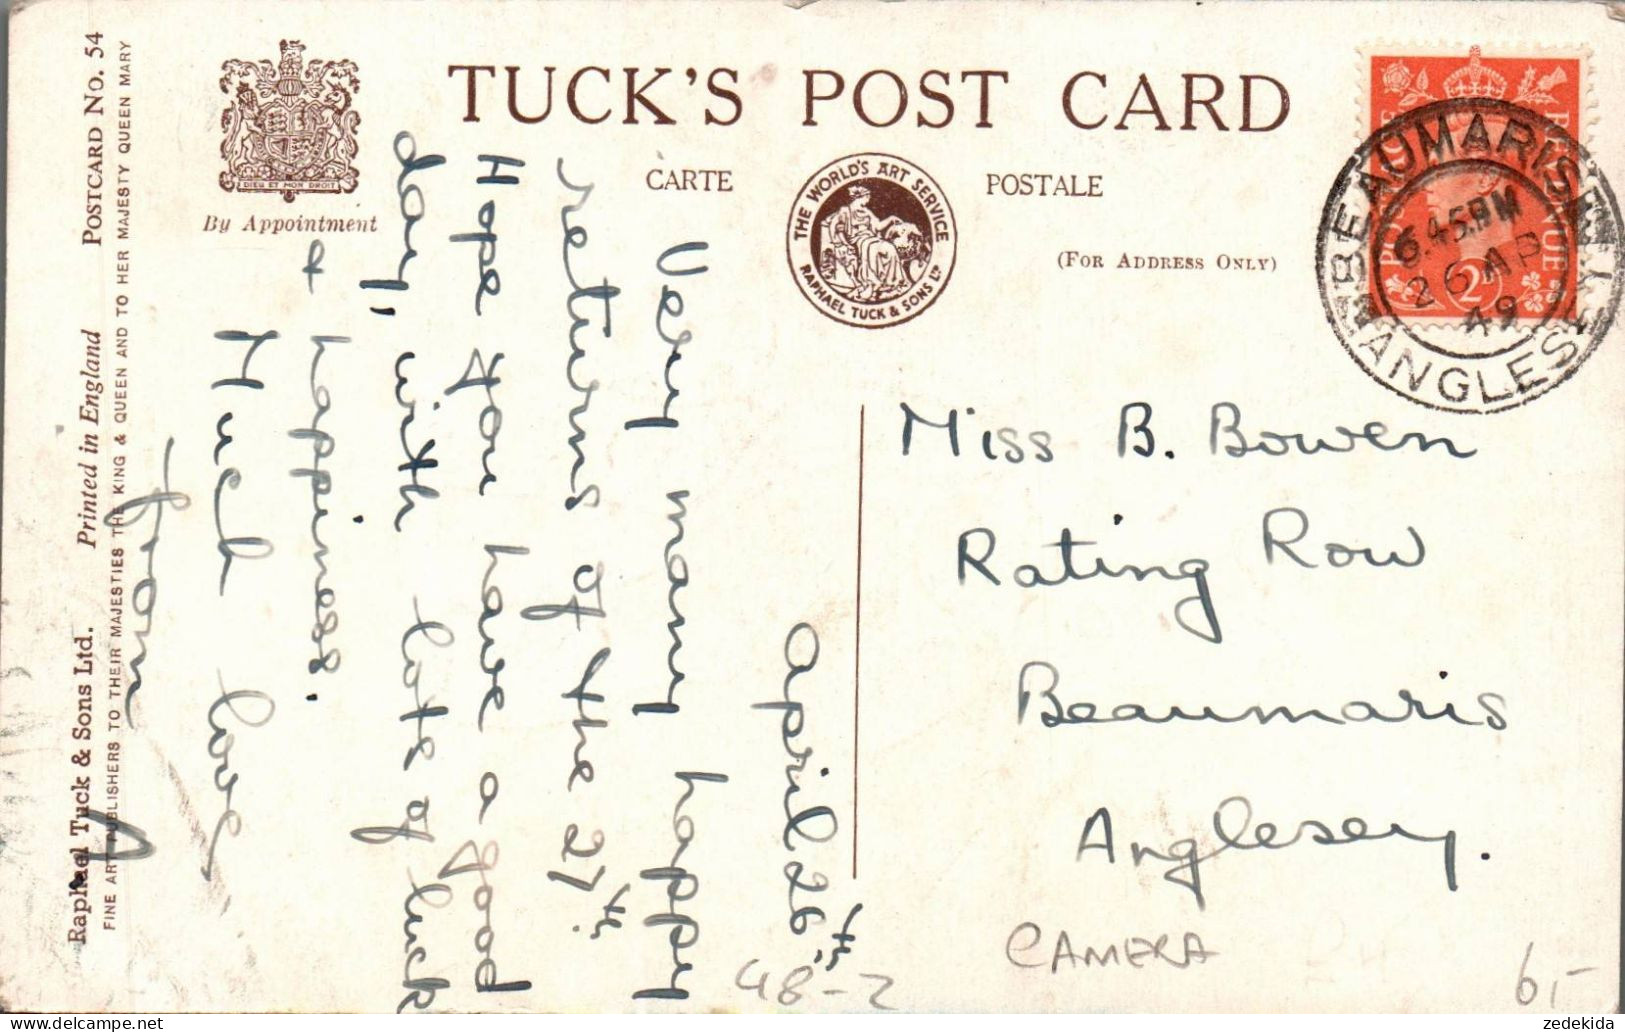 TUCK'S POST CARD
CARTE POSTALE
(FOR ADDRESS ONLY)
By Appointment
DIEU ET MON DROIT
THE WORLD'S ART SERVICE
RAPHAEL TUCK & SONS LTD
POSTAGE REVENUE
2D
BEAUMARIS
6.45PM
26 AP
49
ANGLESEY
Raphael Tuck & Sons Ltd. Printed in England POSTCARD No. 54
FINE ART PUBLISHERS TO THEIR MAJESTIES THE KING & QUEEN AND TO HER MAJESTY QUEEN MARY
April 26th.
Very many happy
returns of the 27th.
Hope you have a good
day, with lots of luck
& happiness.
Much love
from
Miss B. Bowen
Rating Row
Beaumaris
Anglesey.
CAMERA
48-2
6,-
zedekida